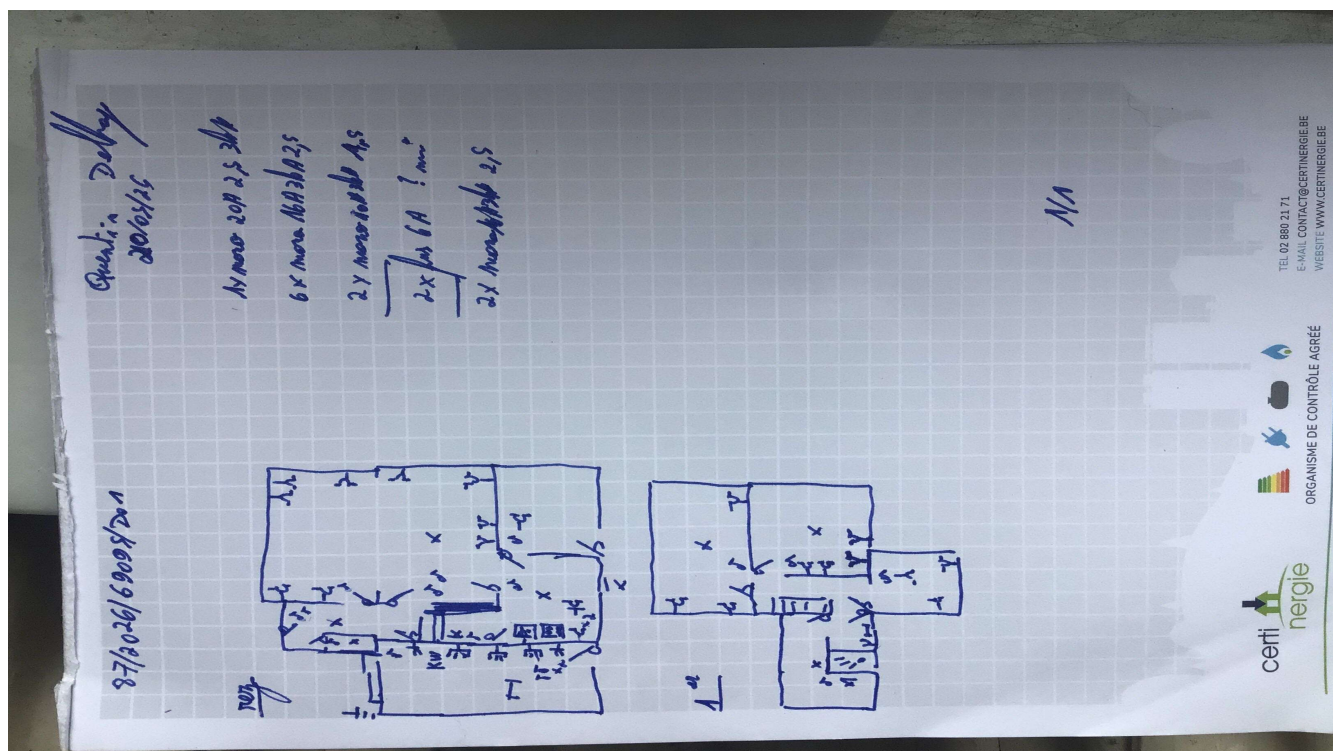 87/2026/69095/201
Quentin
1x mono 20A 2,5
6x mono 16A 2,5
2x mono 1,5
2x fus 6A ? mm²
2x mono 2,5
rez
KW
1er
1/1
certi
nergie
ORGANISME DE CONTRÔLE AGRÉÉ
TEL 02 880 21 71
E-MAIL CONTACT@CERTINERGIE.BE
WEBSITE WWW.CERTINERGIE.BE